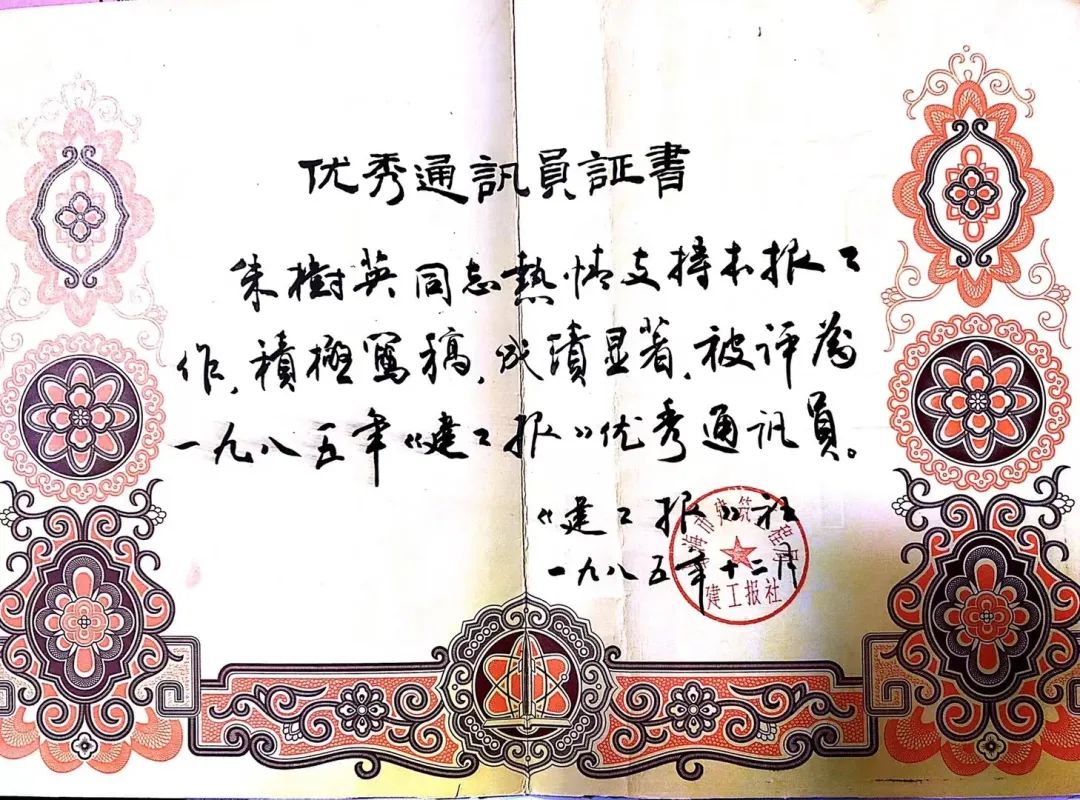 优秀通訊員証書
朱樹英同志熱情支持本报工
作，積極寫稿，成績显著，被评為
一九八五年《建工报》优秀通訊員。
《建工报》社
一九八五年十二月
海市建筑工程局
建工报社